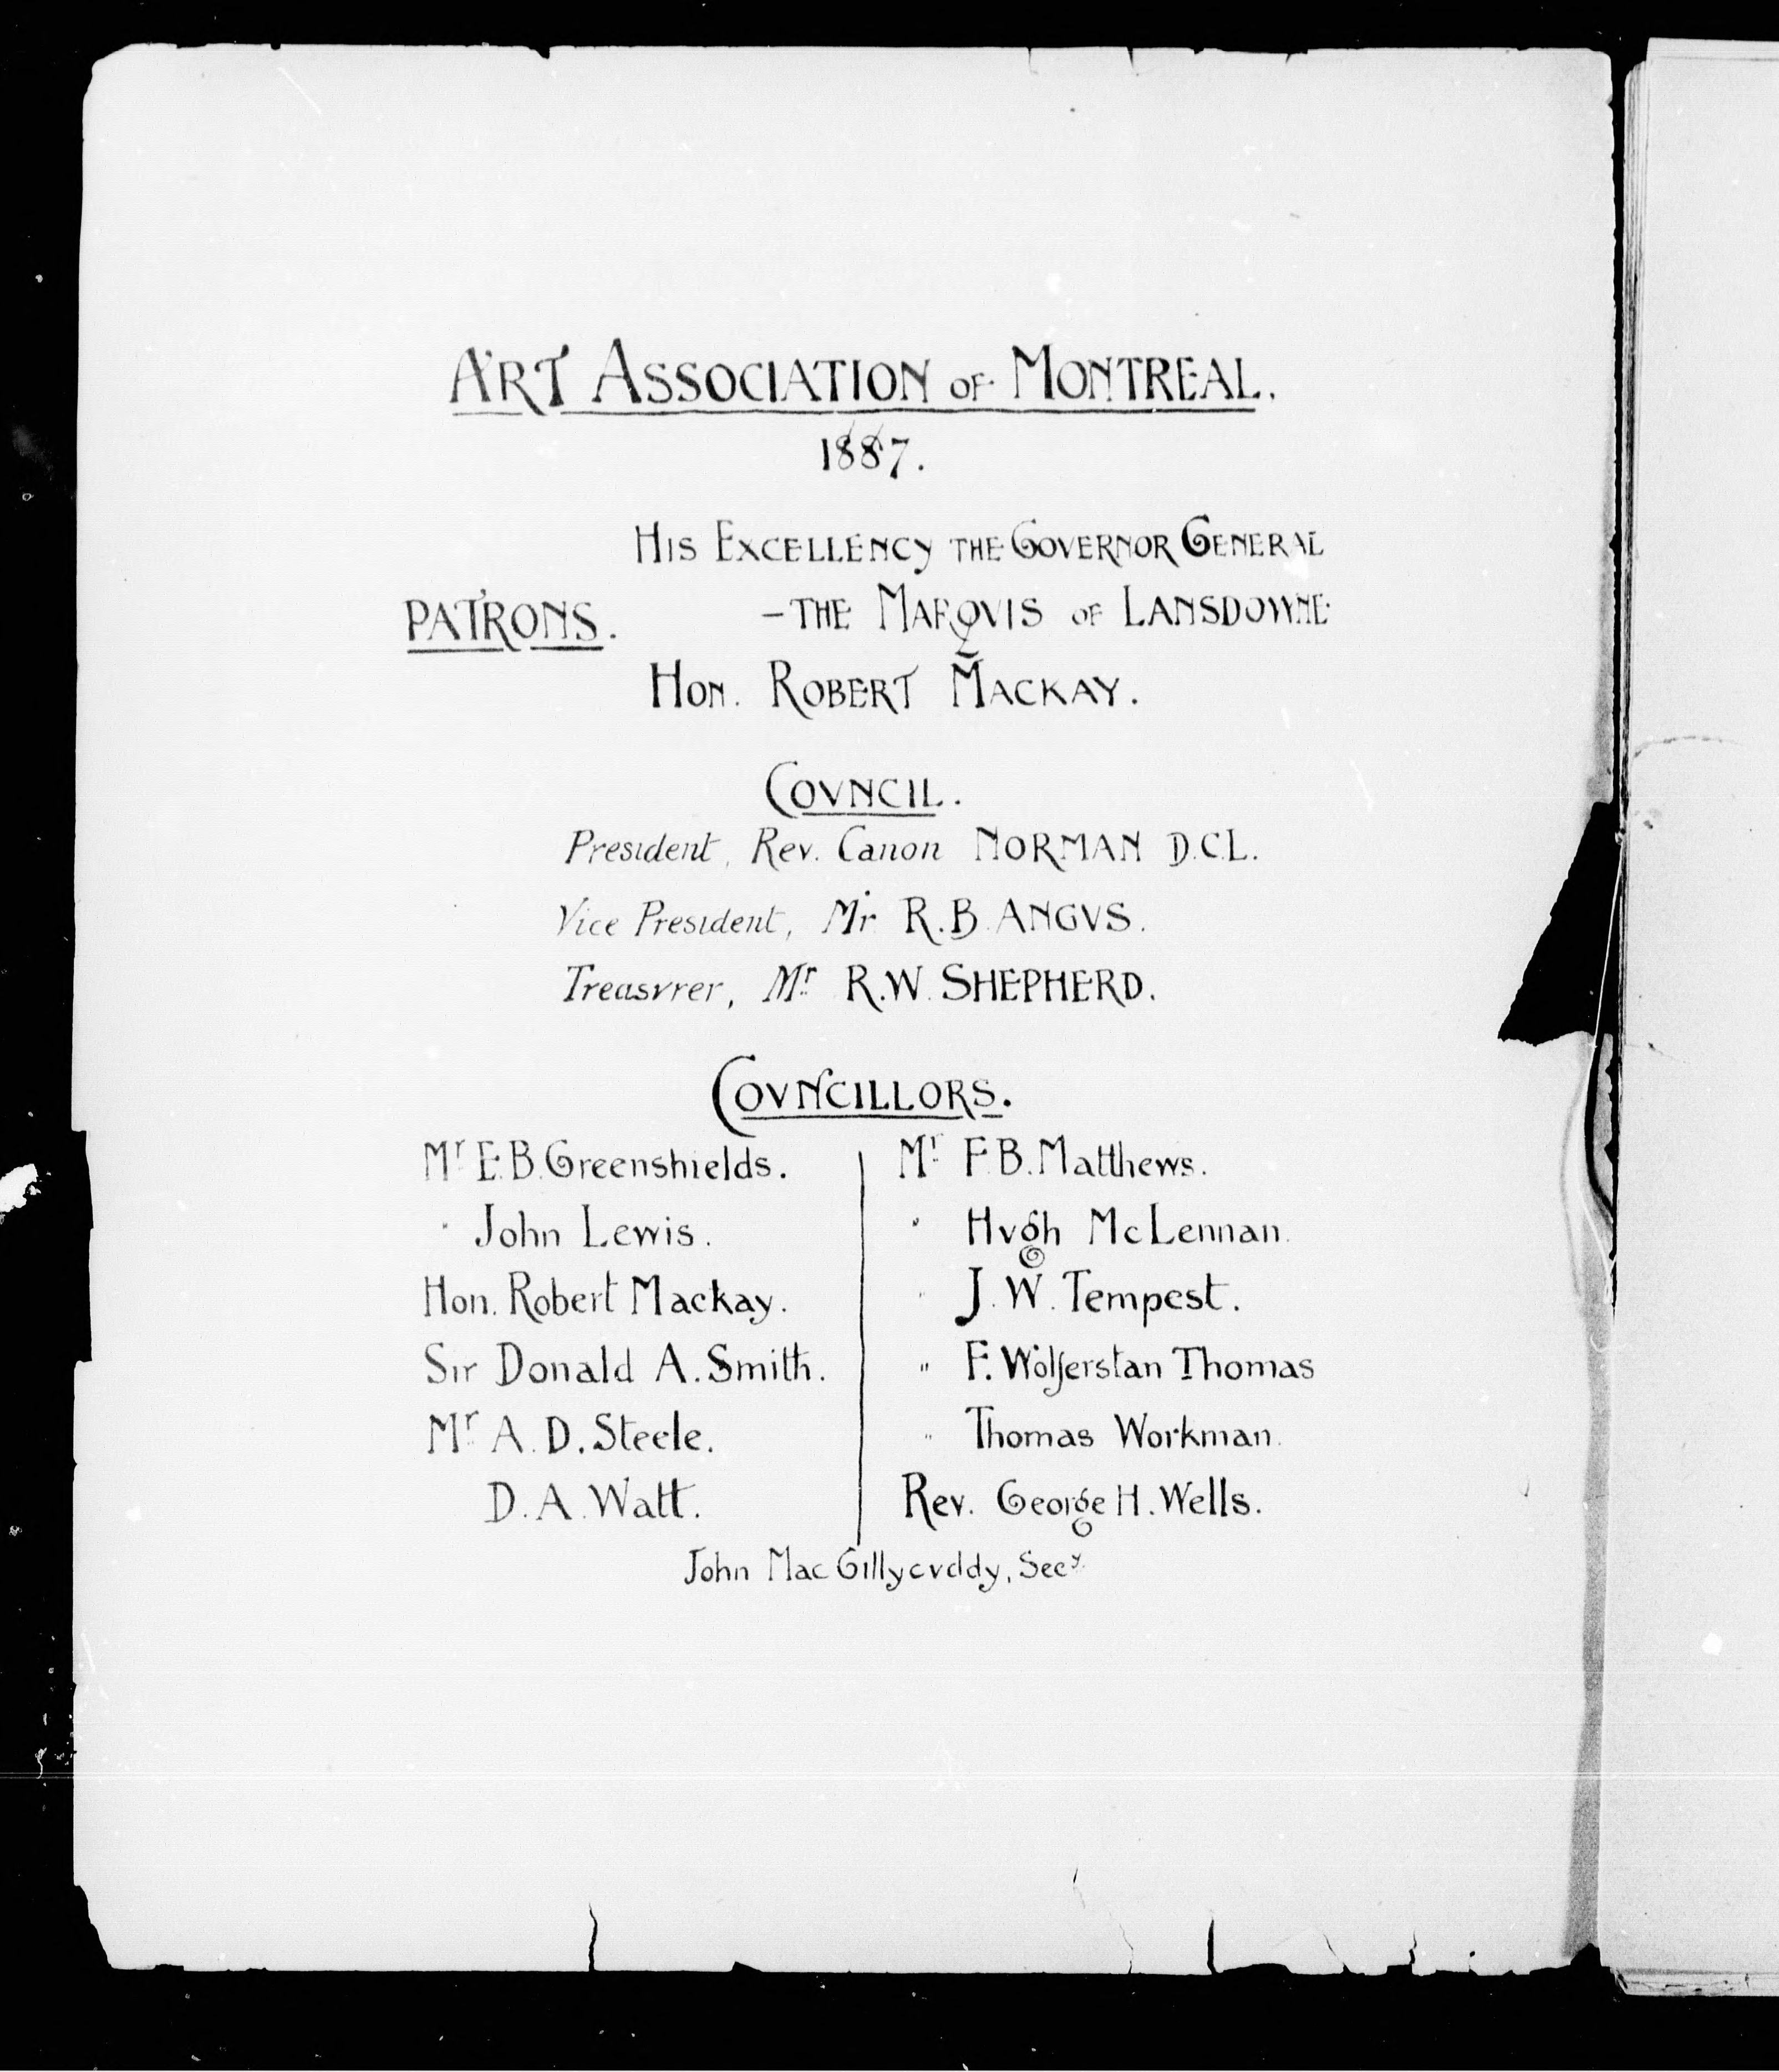 ART ASSOCIATION OF MONTREAL.
1887.
HIS EXCELLENCY THE GOVERNOR GENERAL
PATRONS. – THE MARQVIS OF LANSDOWNE
HON. ROBERT MACKAY.
COVNCIL.
President, Rev. Canon NORMAN D.C.L.
Vice President, Mr R.B. ANGVS.
Treasvrer, Mr R.W. SHEPHERD.
COVNCILLORS.
Mr E.B. Greenshields.
" John Lewis.
Hon. Robert Mackay.
Sir Donald A. Smith.
Mr A. D. Steele.
D. A. Watt.
Mr F.B. Matthews.
" Hvgh McLennan.
" J. W. Tempest.
" F. Wolferstan Thomas
" Thomas Workman.
Rev. George H. Wells.
John Mac Gillycvddy, Secy.